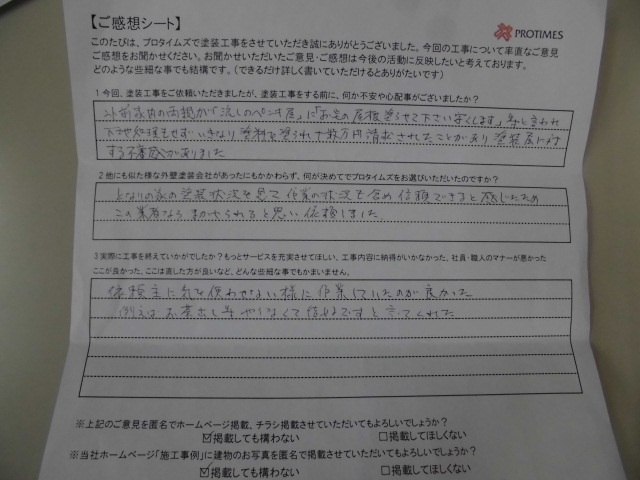 【ご感想シート】
PROTIMES
このたびは、プロタイムズで塗装工事をさせていただき誠にありがとうございました。今回の工事について率直なご意見
ご感想をお聞かせください。お聞かせいただいたご意見・ご感想は今後の活動に反映したいと考えております。
どのような些細な事でも結構です。（できるだけ詳しく書いていただけるとありがたいです）
1 今回、塗装工事をご依頼いただきましたが、塗装工事をする前に、何か不安や心配事がございましたか？
以前家内の両親が「流しのペンキ屋」に「お宅の屋根塗らせて下さい安くします」等と言われ
下地処理もせずいきなり塗料を塗られ十数万円請求されたことがあり塗装屋に対
する不審感がありました
2 他にも似た様な外壁塗装会社があったにもかかわらず、何が決めてでプロタイムズをお選びいただいたのですか？
となりの家の塗装状況を見て作業の状況も含め信頼できると感じたため
この業者ならまかせられると思い依頼しました
3 実際に工事を終えていかがでしたか？もっとサービスを充実させてほしい、工事内容に納得がいかなかった、社員・職人のマナーが悪かった
ここが良かった、ここは直した方が良いなど、どんな些細な事でもかまいません。
依頼主に気を使わせない様に作業していたのが良かった
例えばお茶出し等やらなくて結構ですと言ってくれた
※上記のご意見を匿名でホームページ掲載、チラシ掲載させていただいてもよろしいでしょうか？
☑掲載しても構わない □掲載してほしくない
※当社ホームページ「施工事例」に建物のお写真を匿名で掲載させていただいてもよろしいでしょうか？
☑掲載しても構わない □掲載してほしくない